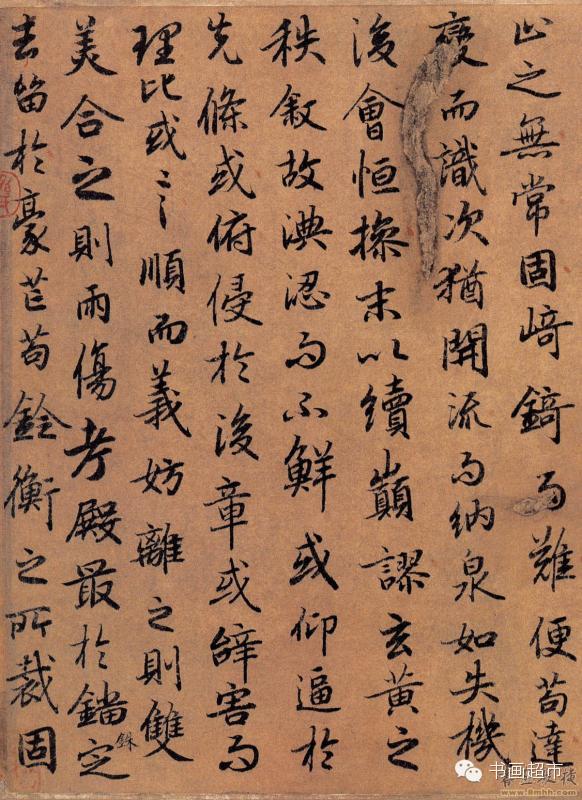 止之無常固崎錡而難便苟達
變而識次猶開流而納泉如失機
後會恒操末以續巔謬玄黃之
秩敘故淟涊而不鮮或仰逼於
先條或俯侵於後章或辝害而
理比或言順而義妨離之則雙
美合之則兩傷考殿最於錙銖定
去留於豪芒苟銓衡之所裁固
书画超市
www.8mhh.com